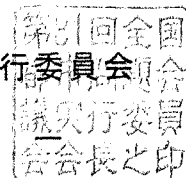 行委員会
第回全国
会
議実行委員
会会長之印